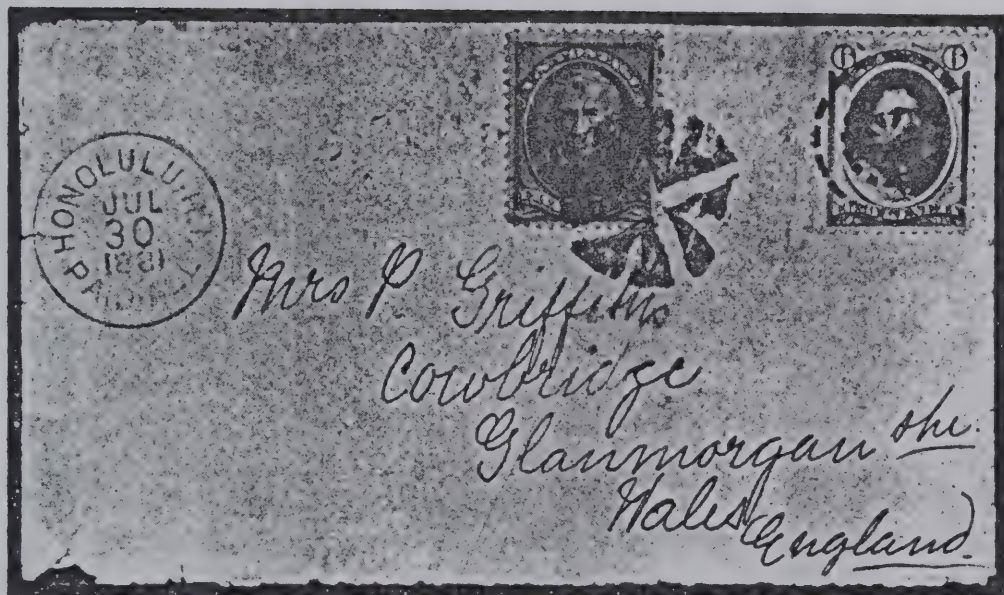 HONOLULU H.I.
JUL
30
1881
PAID ALL
6 6
Mrs P. Griffiths
Cowbridge
Glanmorgan shr.
Wales England.